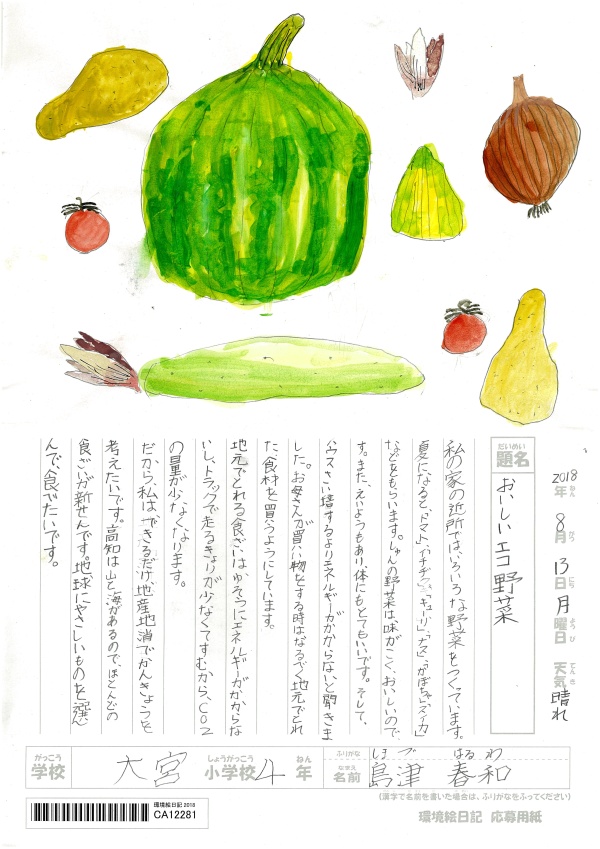 2018年 8月 13日 月曜日 天気 晴れ
ねん がつ にち ようび てんき
だいめい
題名
おいしいエコ野菜
私の家の近所では、いろいろな野菜をつくっています。
夏になると、トマト、カボチャ、キューリ、ナス、かぼちゃ、スイカ
などをもらいます。しゅんの野菜は、味がこく、おいしいので
す。また、えいようもあり、体にもとてもいいです。そして、
ハウスさい培するよりエネルギーがかからないと聞きま
した。お母さんが買い物をする時はなるべく地元でとれ
た、食材を買うようにしています。
地元でとれる食ざいは、ゆそうにエネルギーがかからな
いし、トラックで走るきょりが少なくてすむから、CO2
の量が少なくなります。
だから、私は、できるだけ、地産地消でかんきょうを
考えたいです。高知は山と海があるので、ほとんどの
食ざいが新せんです。地球にやさしいものを選
んで、食べたいです。
がっこう しょうがっこう ねん
学校 大宮 小学校 4 年
ふりがな しまづ はるわ
なまえ
名前 島津 春和
(漢字で名前を書いた場合は、ふりがなをふってください)
環境絵日記 2018
CA12281
環境絵日記 応募用紙